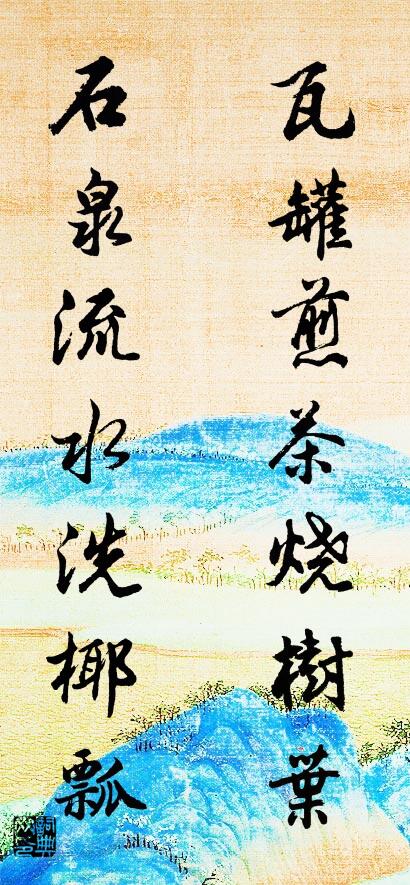 瓦罐煎茶烧樹葉
石泉流水洗椰瓢